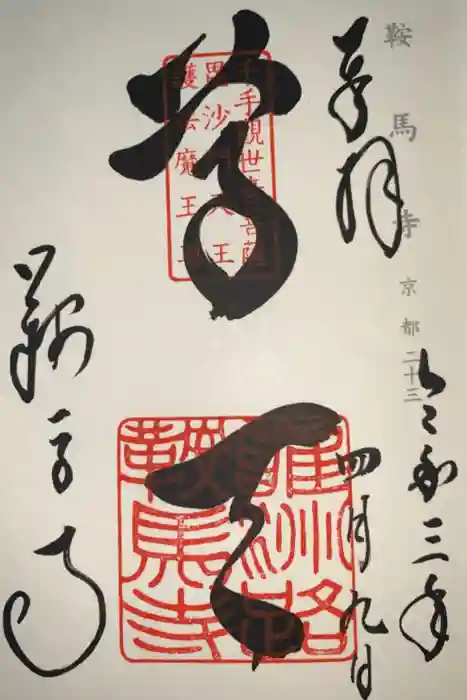 鞍馬寺 京都二十三
奉拝
令和三年
四月九日
尊天
鞍馬寺
千手観世音菩薩
毘沙門天王
護法魔王尊
雍州路
鞍馬寺